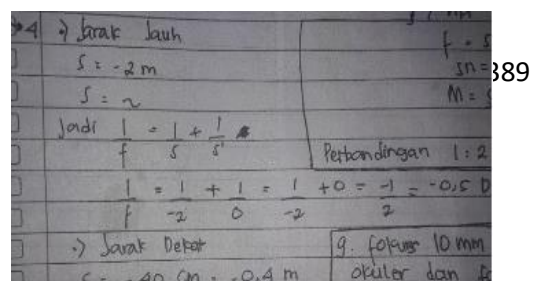 4 •) Jarak Jauh
S = -2 m
S = ~
Jadi 1/f = 1/s + 1/s'
1/f = 1/-2 + 1/0 = 1/-2 + 0 = -1/2 = -0,5 D
•) Jarak Dekat
S = -40 cm = -0.4 m
f = s
sn =
M = s
Perbandingan 1 : 2
9. fokus 10 mm
okuler dan fo
389